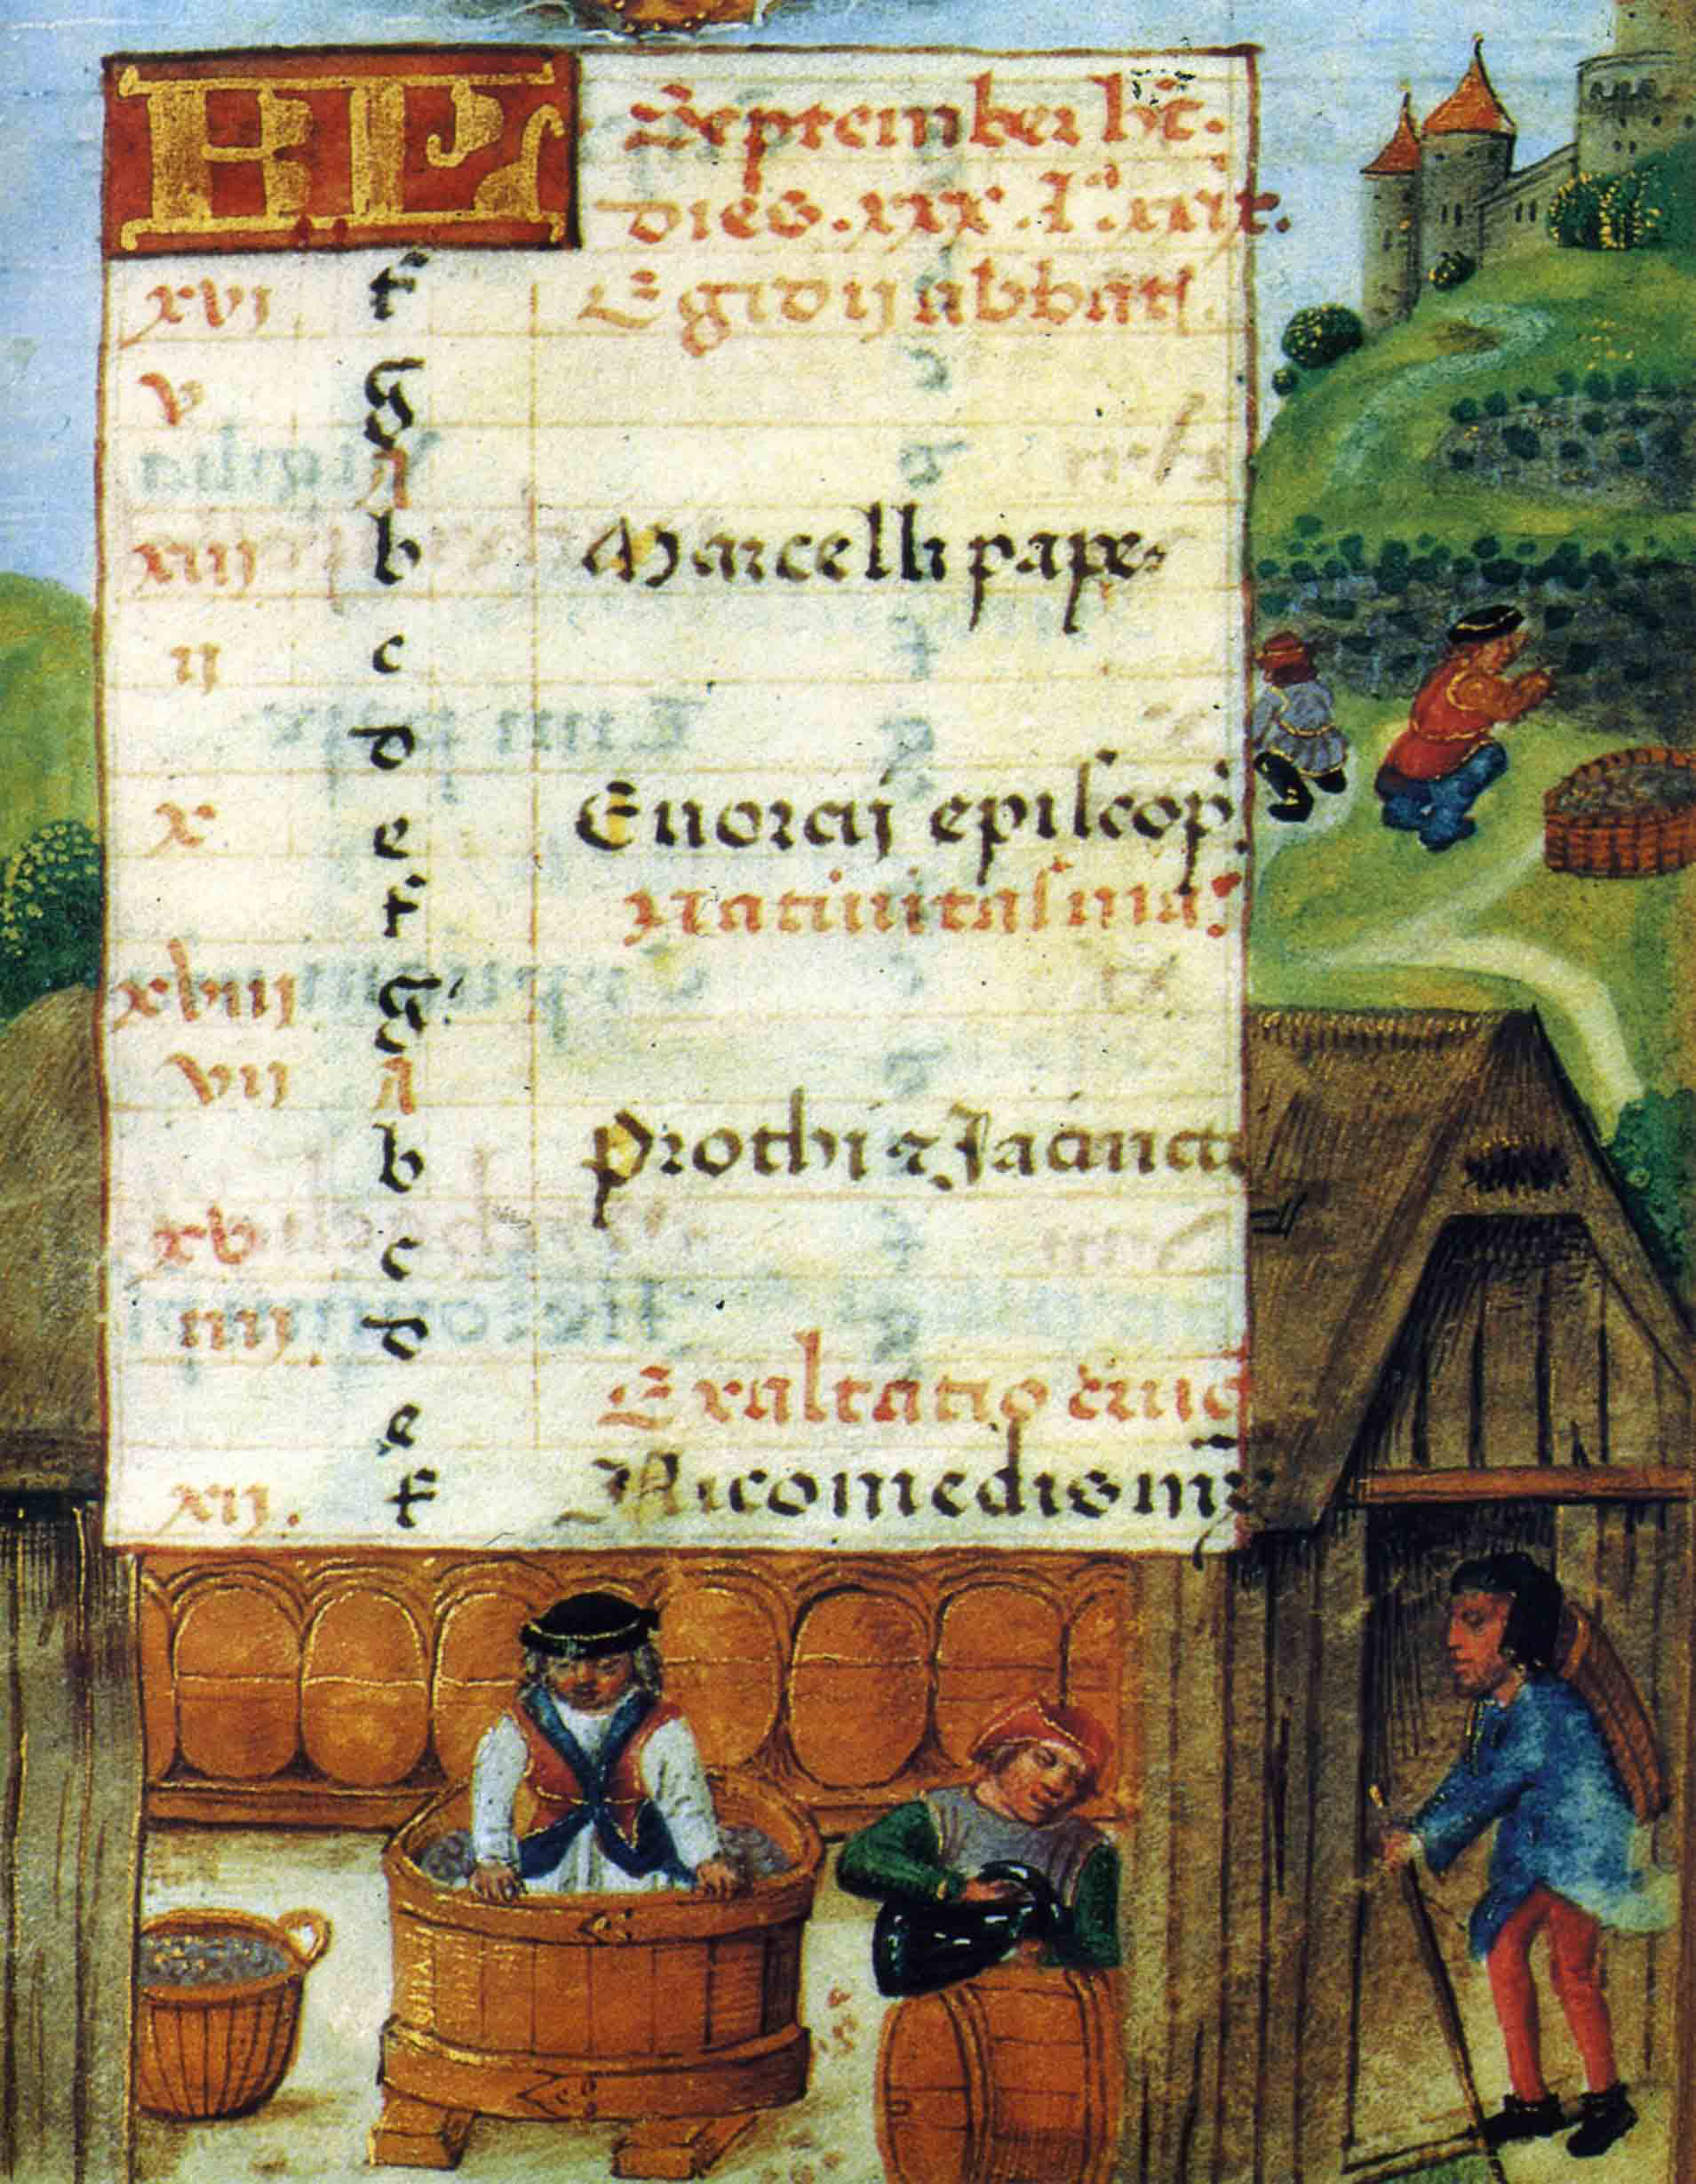 KL September hꝫ.
dies .xxx. Lª. xxix.
xvi f Egidij abbatis.
v g
A
xiij b Marcelli pape
ij c
d
x e Enorcij episcop
f Natiuitas ma
xviij g
vij A
b Prothi ⁊ Jacincti
xv c
iiij d
e Exaltatio cruc
xij. f Nicomedis mr